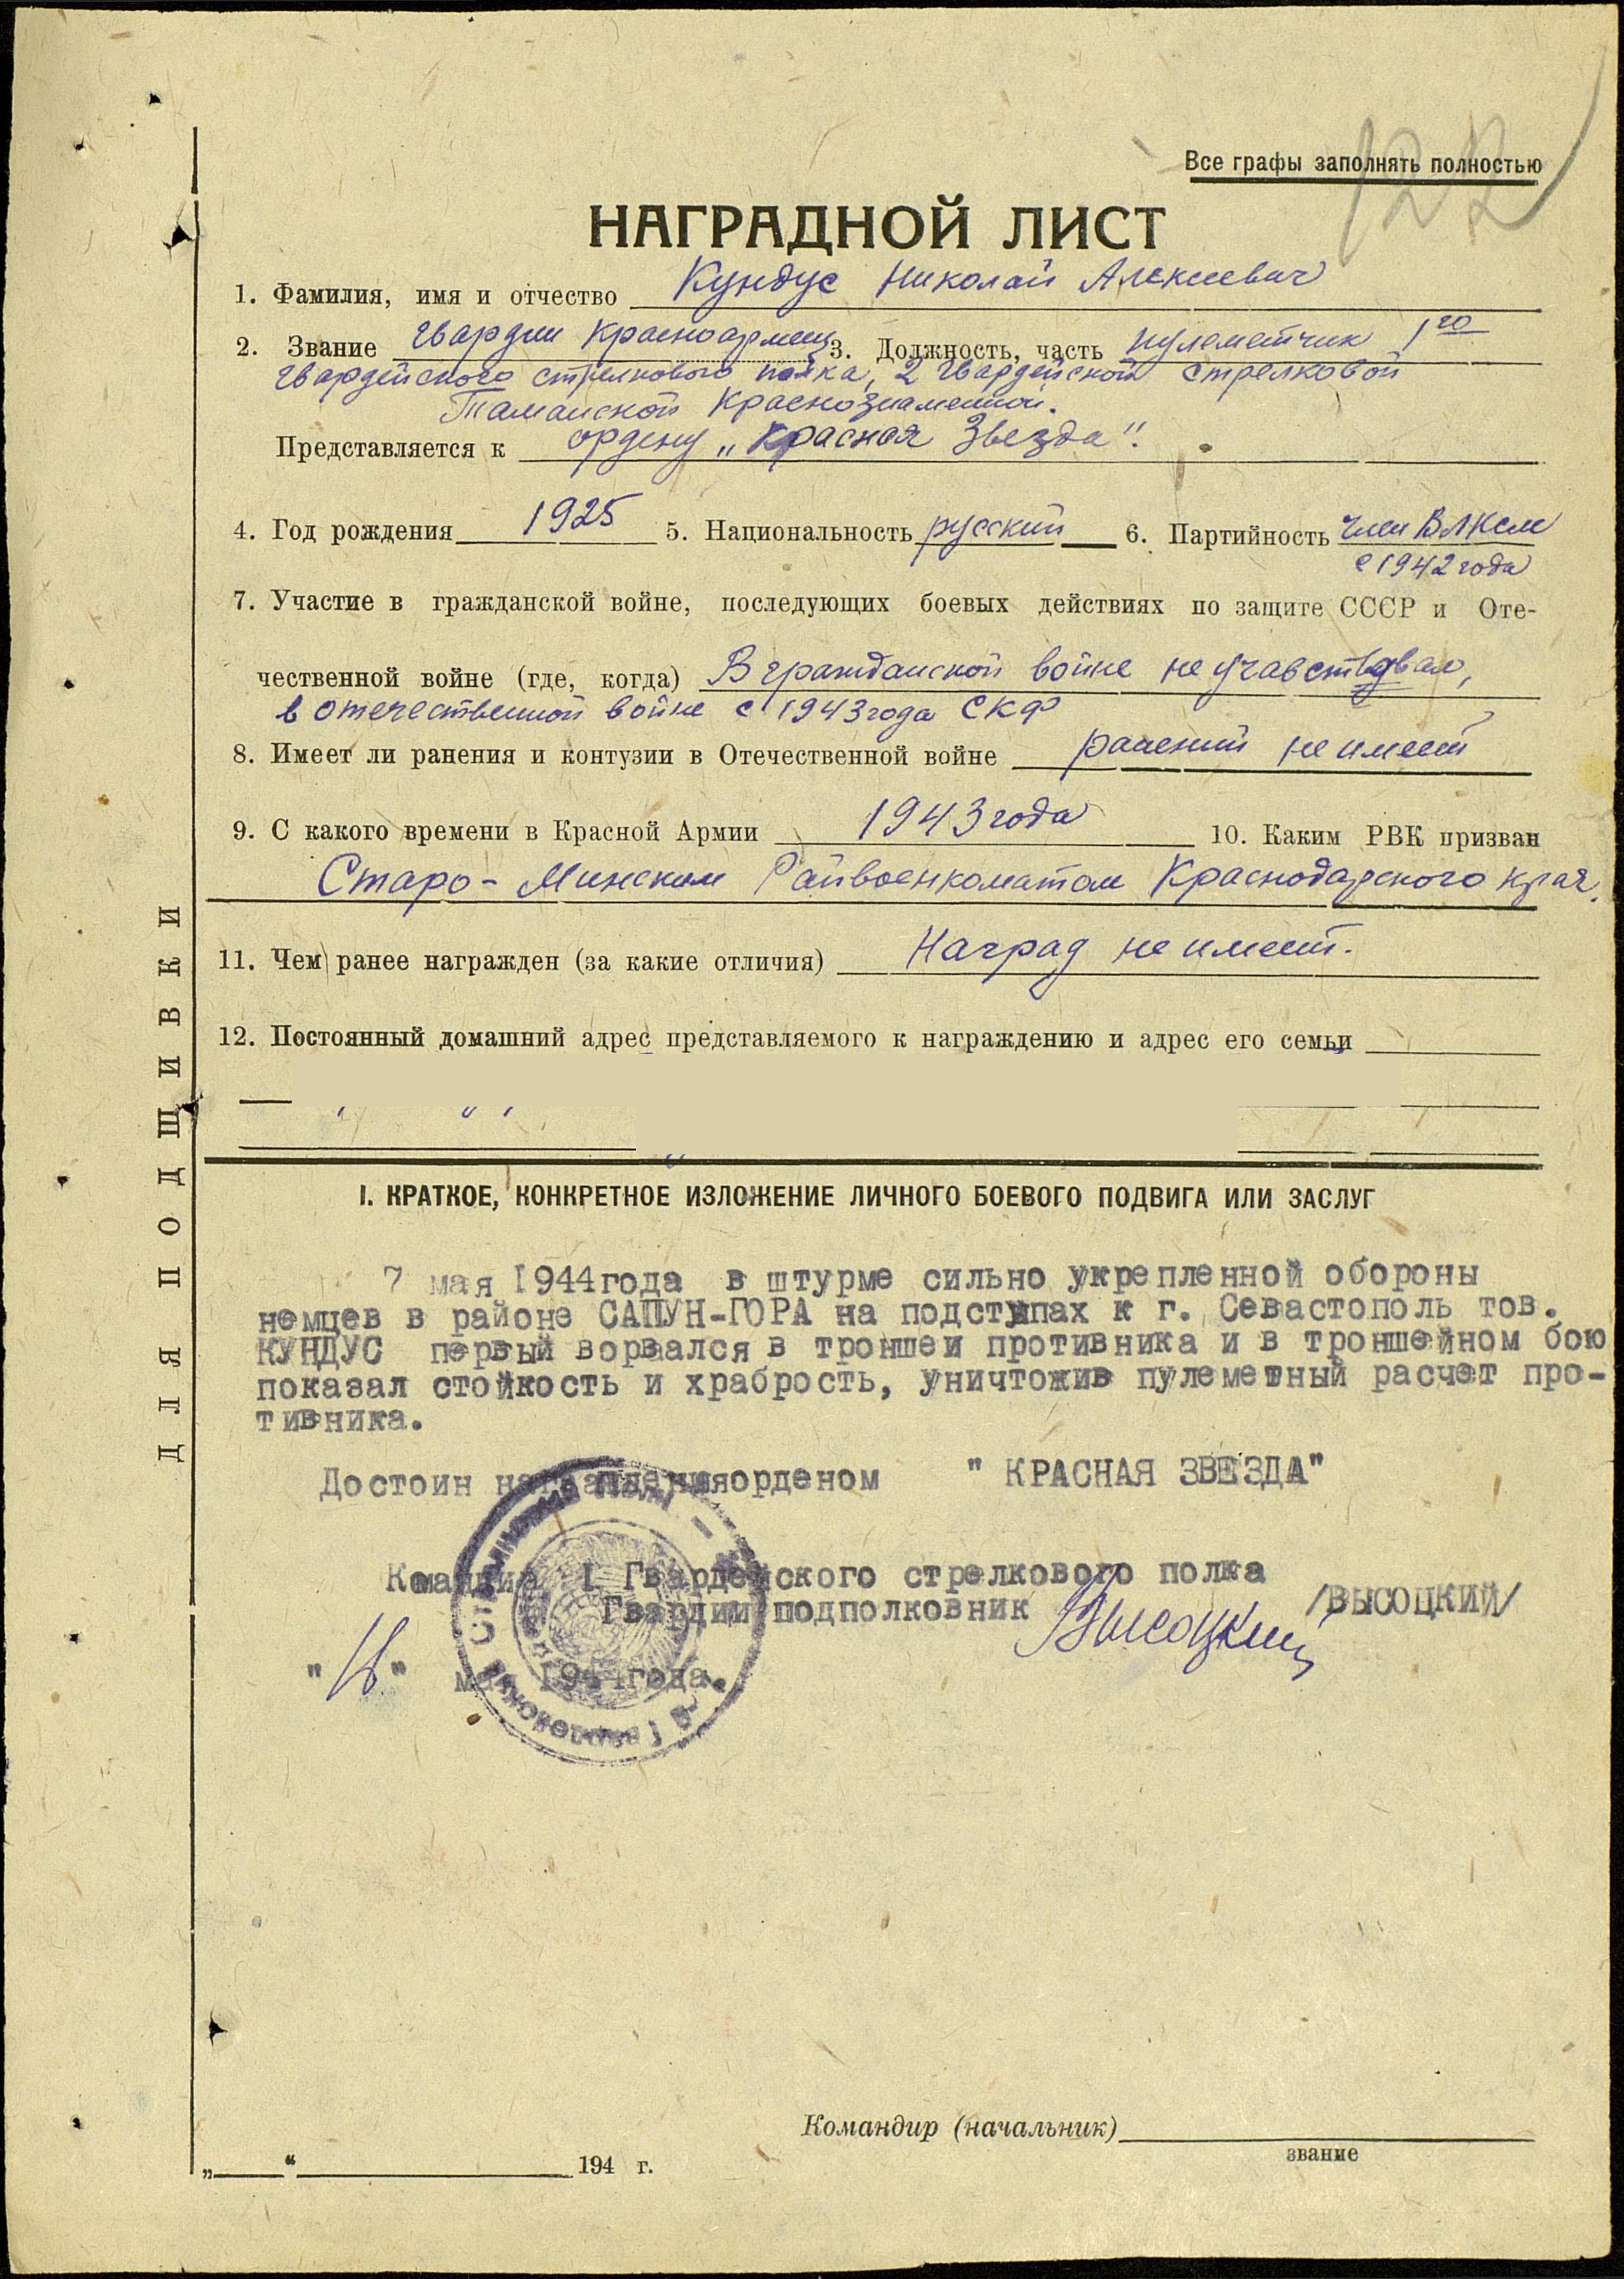 122
Все графы заполнять полностью
НАГРАДНОЙ ЛИСТ
1. Фамилия, имя и отчество Кундус Николай Алексеевич
2. Звание Гвардии Красноармеец 3. Должность, часть пулеметчик 1го
Гвардейского стрелкового полка, 2 Гвардейской стрелковой
Таманской Краснознаменной.
Представляется к ордену „Красная Звезда".
4. Год рождения 1925 5. Национальность русский 6. Партийность член ВЛКСМ
с 1942 года
7. Участие в гражданской войне, последующих боевых действиях по защите СССР и Оте-
чественной войне (где, когда) В гражданской войне не учавствовал,
в отечественной войне с 1943 года СКФ
8. Имеет ли ранения и контузии в Отечественной войне ранений не имеет
9. С какого времени в Красной Армии 1943 года 10. Каким РВК призван
Старо-Минским Райвоенкоматом Краснодарского края.
11. Чем ранее награжден (за какие отличия) Наград не имеет.
12. Постоянный домашний адрес представляемого к награждению и адрес его семьи
I. КРАТКОЕ, КОНКРЕТНОЕ ИЗЛОЖЕНИЕ ЛИЧНОГО БОЕВОГО ПОДВИГА ИЛИ ЗАСЛУГ
7 мая 1944года в штурме сильно укрепленной обороны
немцев в районе САПУН-ГОРА на подступах к г. Севастополь тов.
КУНДУС первый ворвался в троншеи противника и в троншейном бою
показал стойкость и храбрость, уничтожив пулеметный расчет про-
тивника.
Достоин награжденияорденом " КРАСНАЯ ЗВЕЗДА"
Командир 1 Гвардейского стрелкового полка
Гвардии подполковник Высоцкий /ВЫСОЦКИЙ/
" " мая 1944года.
Командир (начальник)
звание
„ “ 194 г.
ДЛЯ ПОДШИВКИ